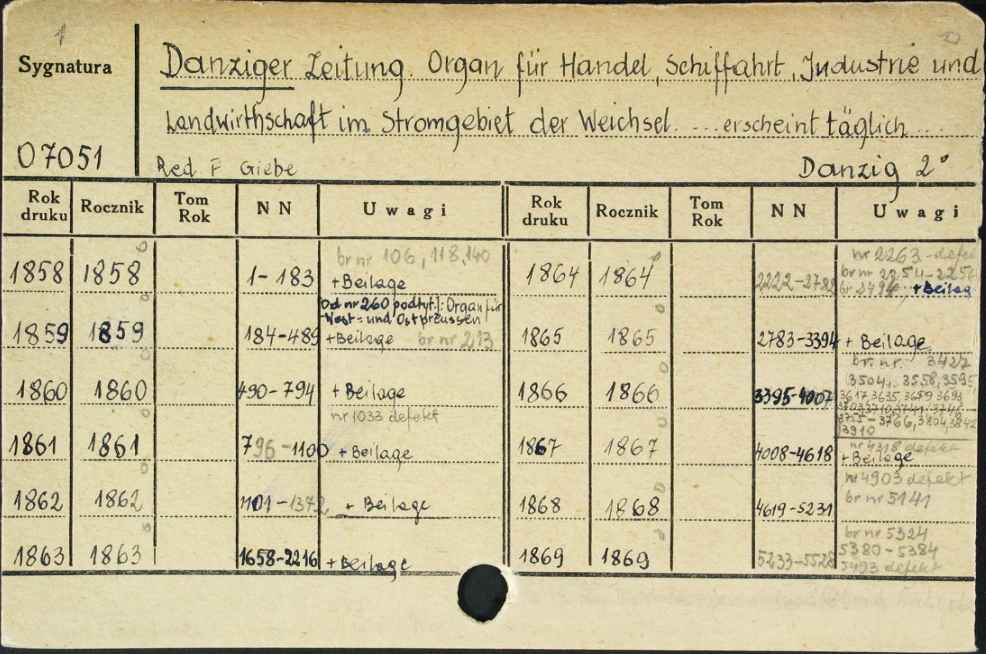 Sygnatura
Danziger Zeitung. Organ für Handel, Schiffahrt, Industrie und
Landwirthschaft im Stromgebiet der Weichsel. ... erscheint täglich ...
07051
Red F Giebe
Danzig 2°
Rok druku Rocznik Tom Rok NN Uwagi Rok druku Rocznik Tom Rok NN Uwagi
1858 1858 1-183 br nr 106, 118, 140
+ Beilage
1859 1859 184-489 Od nr 260 podtyt.: Organ für
West- und Ostpreussen
+ Beilage br nr 213
1860 1860 490-794 + Beilage
1861 1861 796-1100 nr 1033 defekt
+ Beilage
1862 1862 1101-1372 + Beilage
1863 1863 1658-2216 + Beilage
1864 1864 nr 2263 defekt
br nr
+ Beilag
1865 1865 2783-3394 + Beilage
1866 1866 3395-4007 br. nr. 3427
3504, 3558, 3595,
3617, 3635, 3659, 3693
3766, 3804, 3842
3910
1867 1867 4008-4618 nr 4318 defekt
+ Beilage
1868 1868 4619-5231 nr 4903 defekt
br nr 5141
1869 1869 5233-5528 br nr 5324
5380-5384
5493 defekt